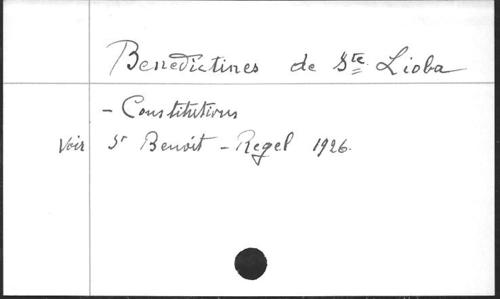 Benedictines de Ste. Lioba
- Constitutions
Voir St Benoit - Regel 1926.